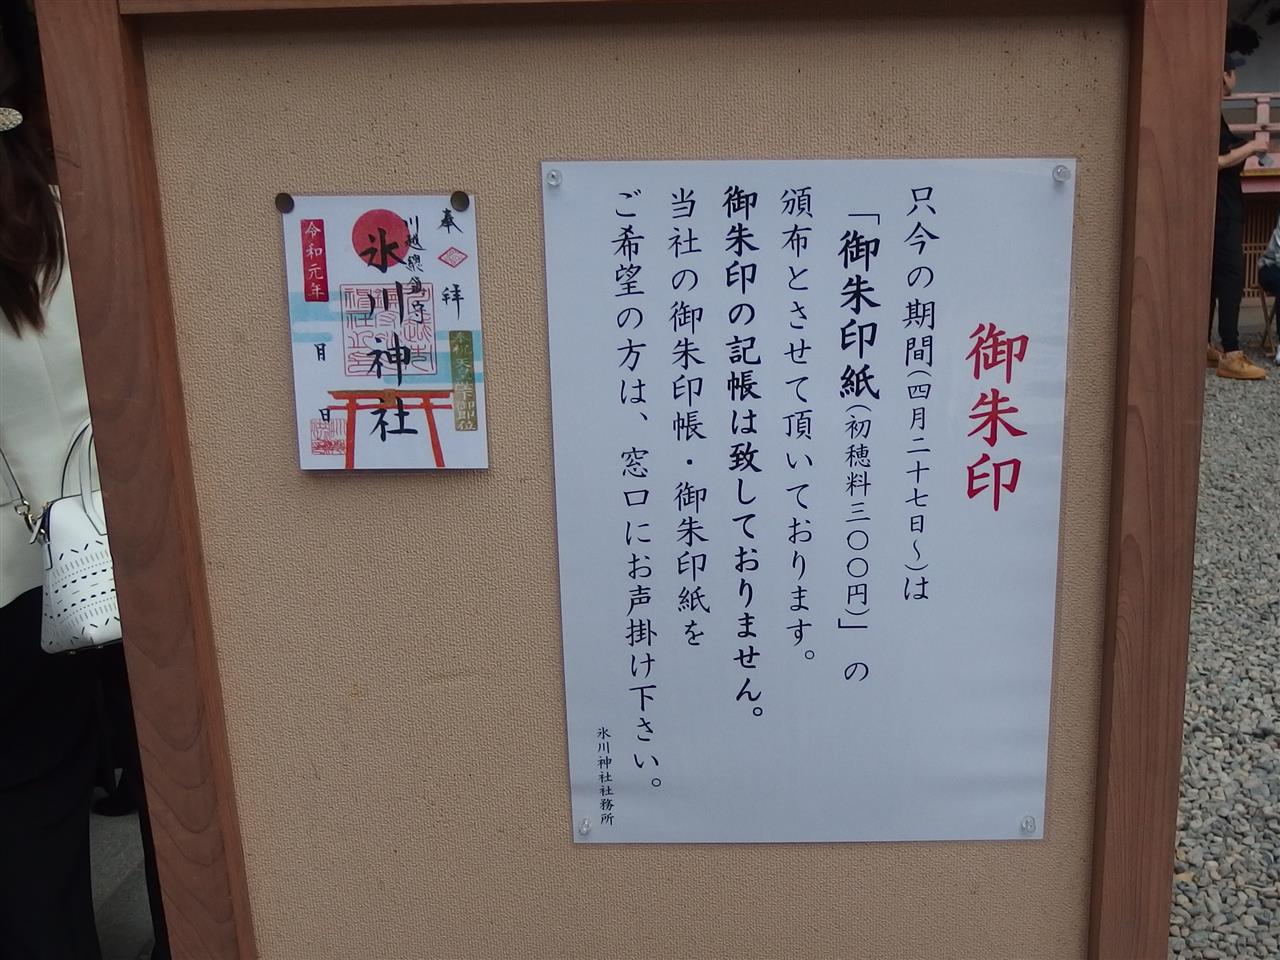 御朱印
只今の期間(四月二十七日〜)は
「御朱印紙(初穂料三〇〇円)」の
頒布とさせて頂いております。
御朱印の記帳は致しておりません。
当社の御朱印帳・御朱印紙を
ご希望の方は、窓口にお声掛け下さい。
氷川神社社務所
奉拝
川越總鎮守
氷川神社
令和元年
月
日